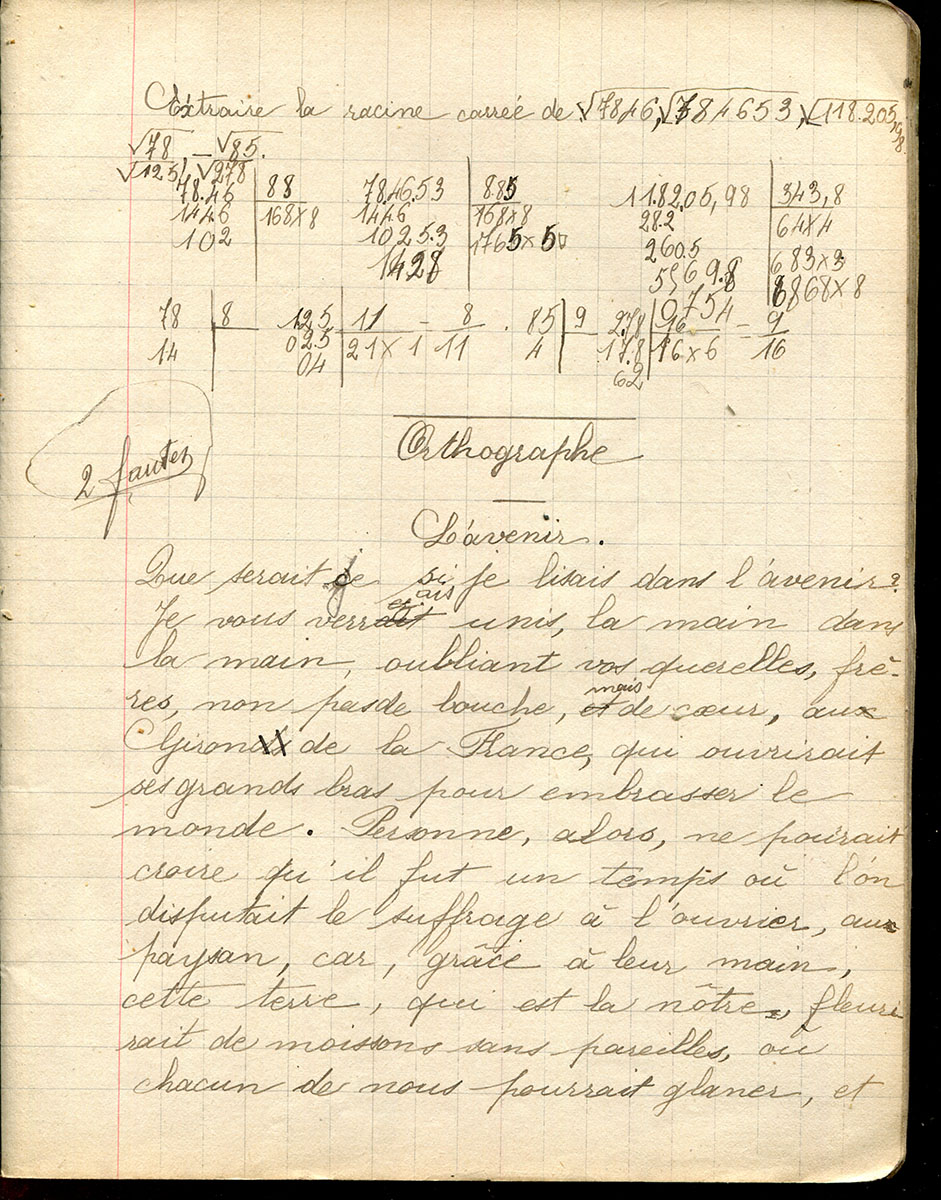 Extraire la racine carrée de √7846, √784653, √118.205,98.
√78, – √85.
√125, √278
78.46 | 88   7846.53 | 885   11.82.05,98 | 343,8
1446 | 168x8   1446 | 168x8   28.2 | 64x4
102   1025.3 | 1765x5   260.5 | 683x3
1428   5569.8 | 6868x8
0754
78 | 8   125 | 11 – 8   85 | 9   2.78 | 16 – 9
14   025 | 21x1   11   4   17.8 | 16x6   16
04   62
Orthographe
2 fautes
L'avenir.
Que serait je si je lisais dans l'avenir?
ais
Je vous verrait unis, la main dans
la main, oubliant vos querelles, frè-
mais
res, non pas de bouche, et de cœur, aux
Giron de la France, qui ouvrirait
ses grands bras pour embrasser le
monde. Personne, alors, ne pourrait
croire qu'il fut un temps où l'on
disputait le suffrage à l'ouvrier, aux
paysan, car, grâce à leur main,
cette terre, qui est la nôtre, fleuri
rait de moissons sans pareilles, ou
chacun de nous pourrait glaner, et